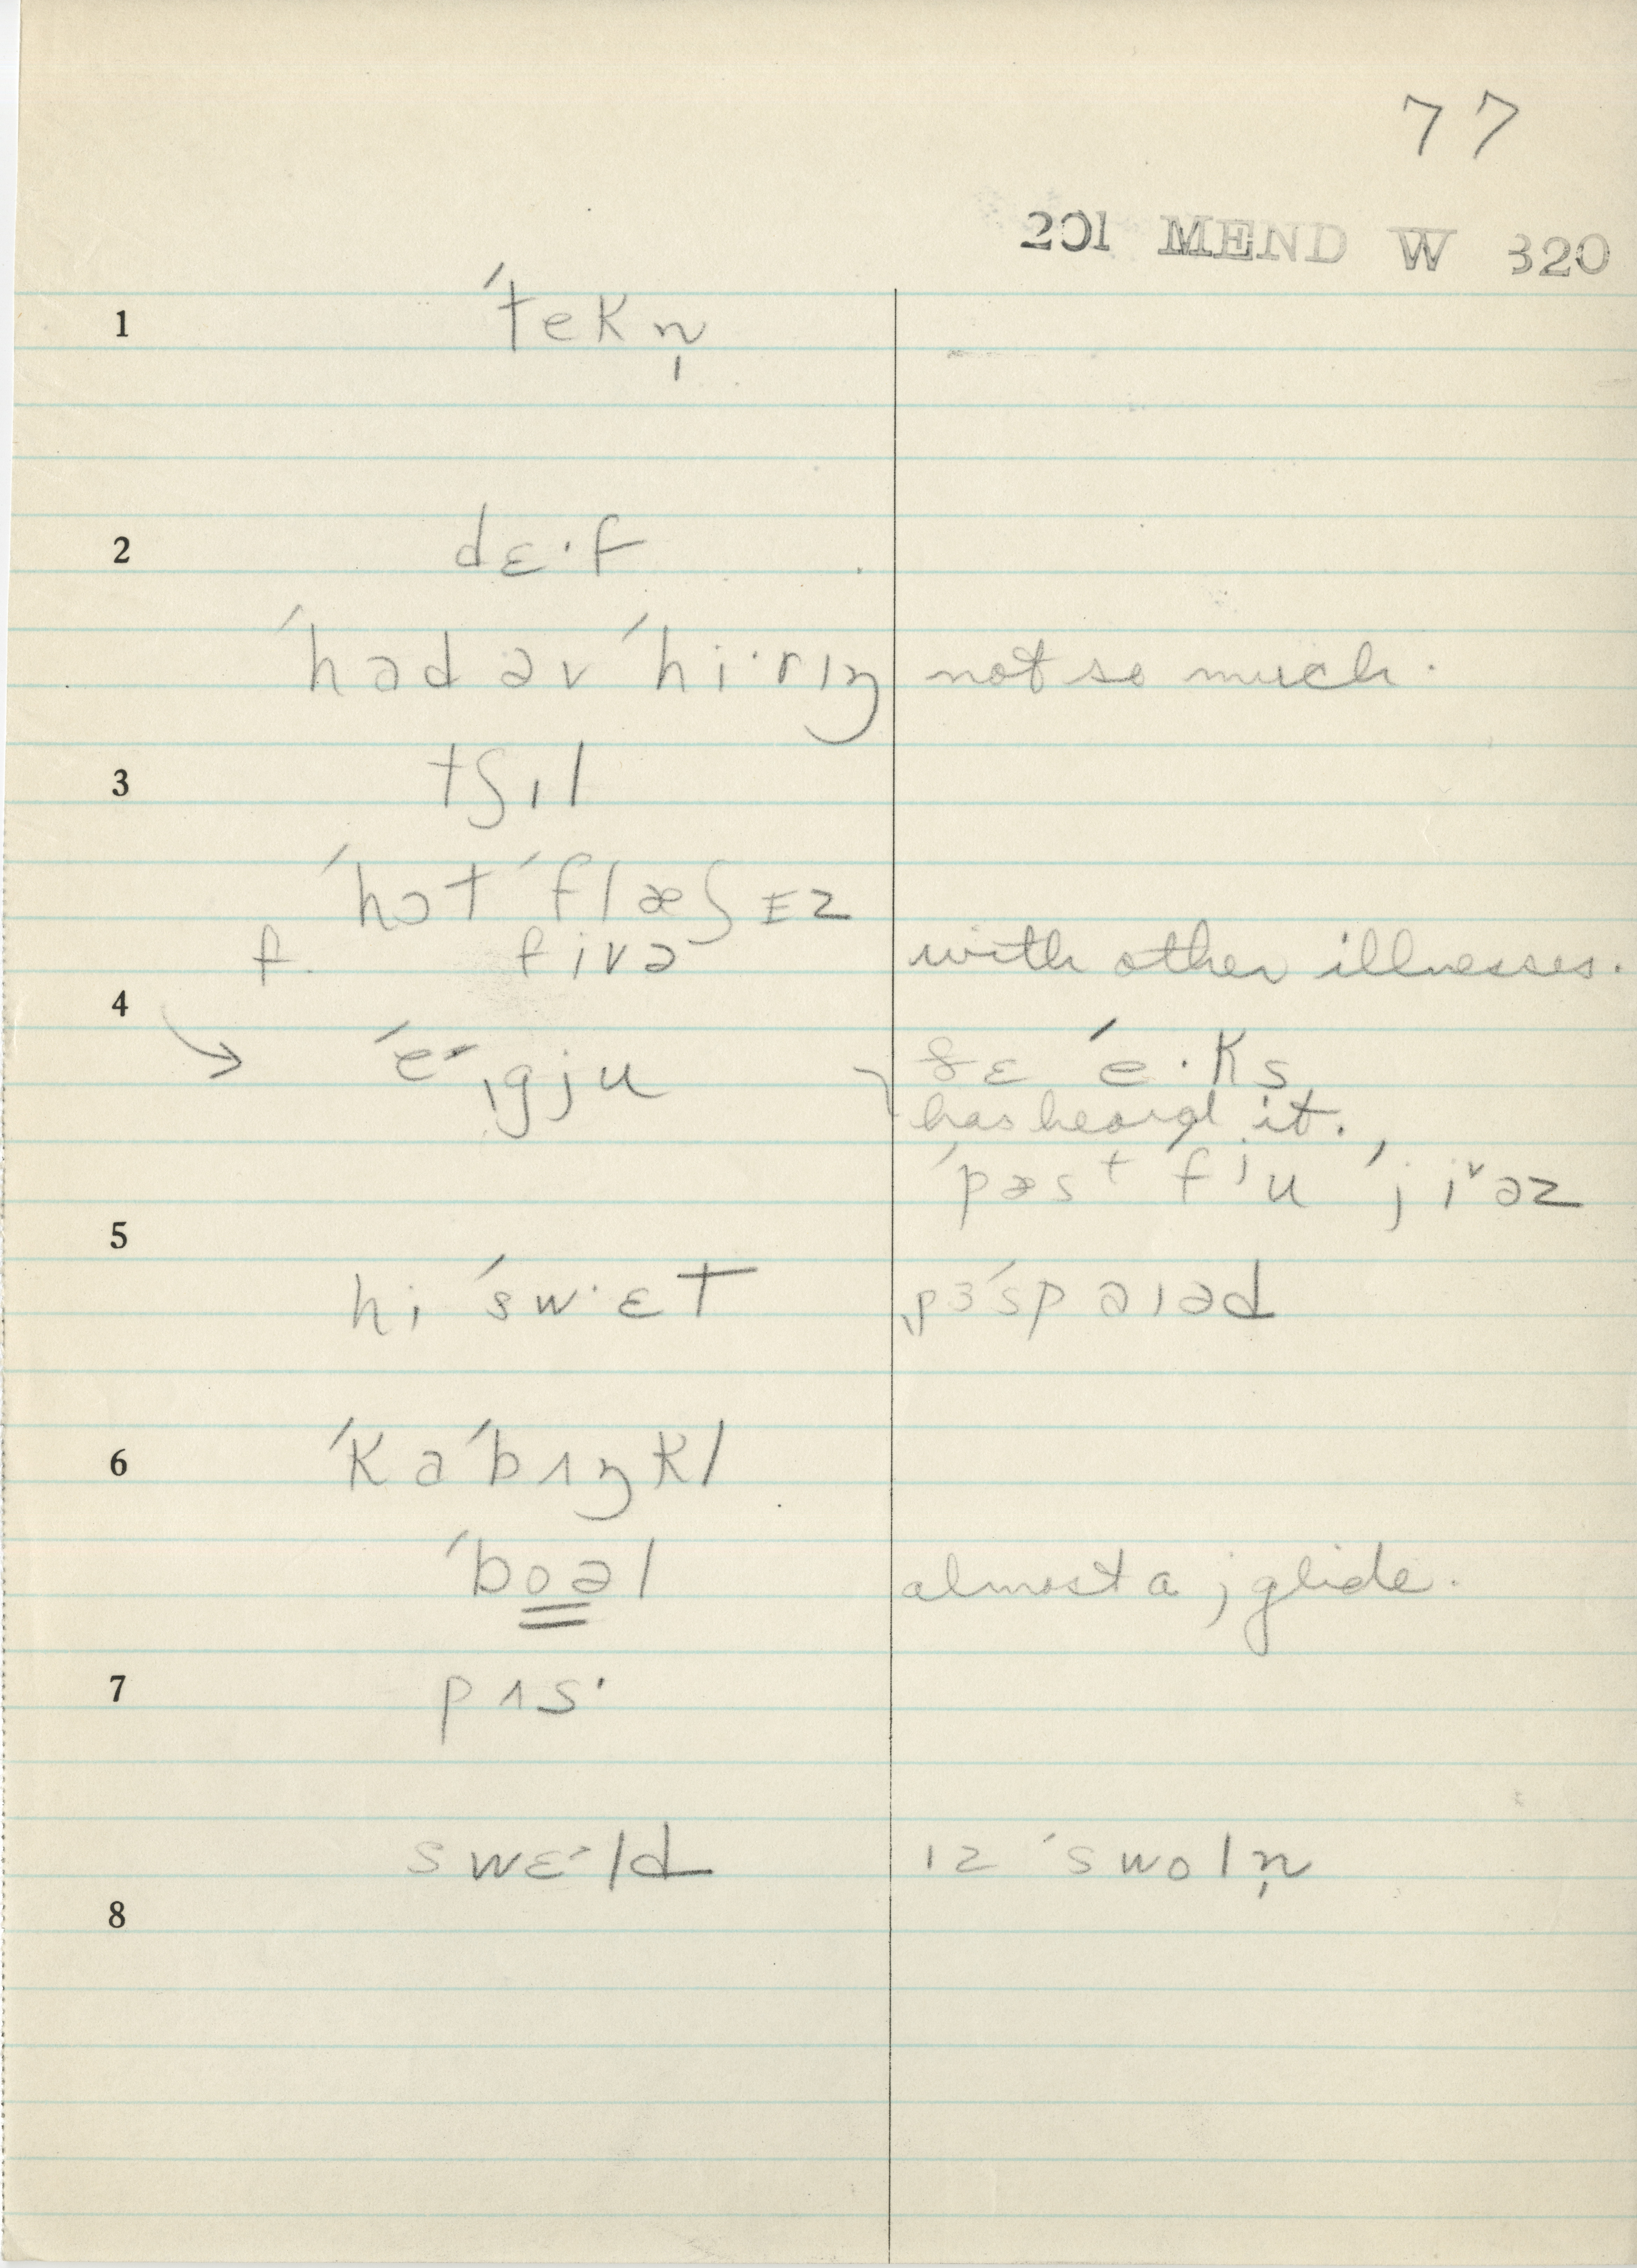 77
201 MEND W 320
1 ´tekn̩
2 dɛ·f
´hɑd əv ´hi·rɪŋ not so much.
3 tʃɪl
´hɔt ´flæʃɪz
f. fivə with other illnesses.
4
→ ´e´ˌgju ðɛ ´e·ks
has heard it.
´pæst ´fju ´jiˇəz
5
hi ´sw·ɛt pɜ´spaɪəd
6 ´kɑ´bʌŋkl
´boəl almost a j glide.
7 pʌs·
swɛ·ld ɪz ´swoln̩
8